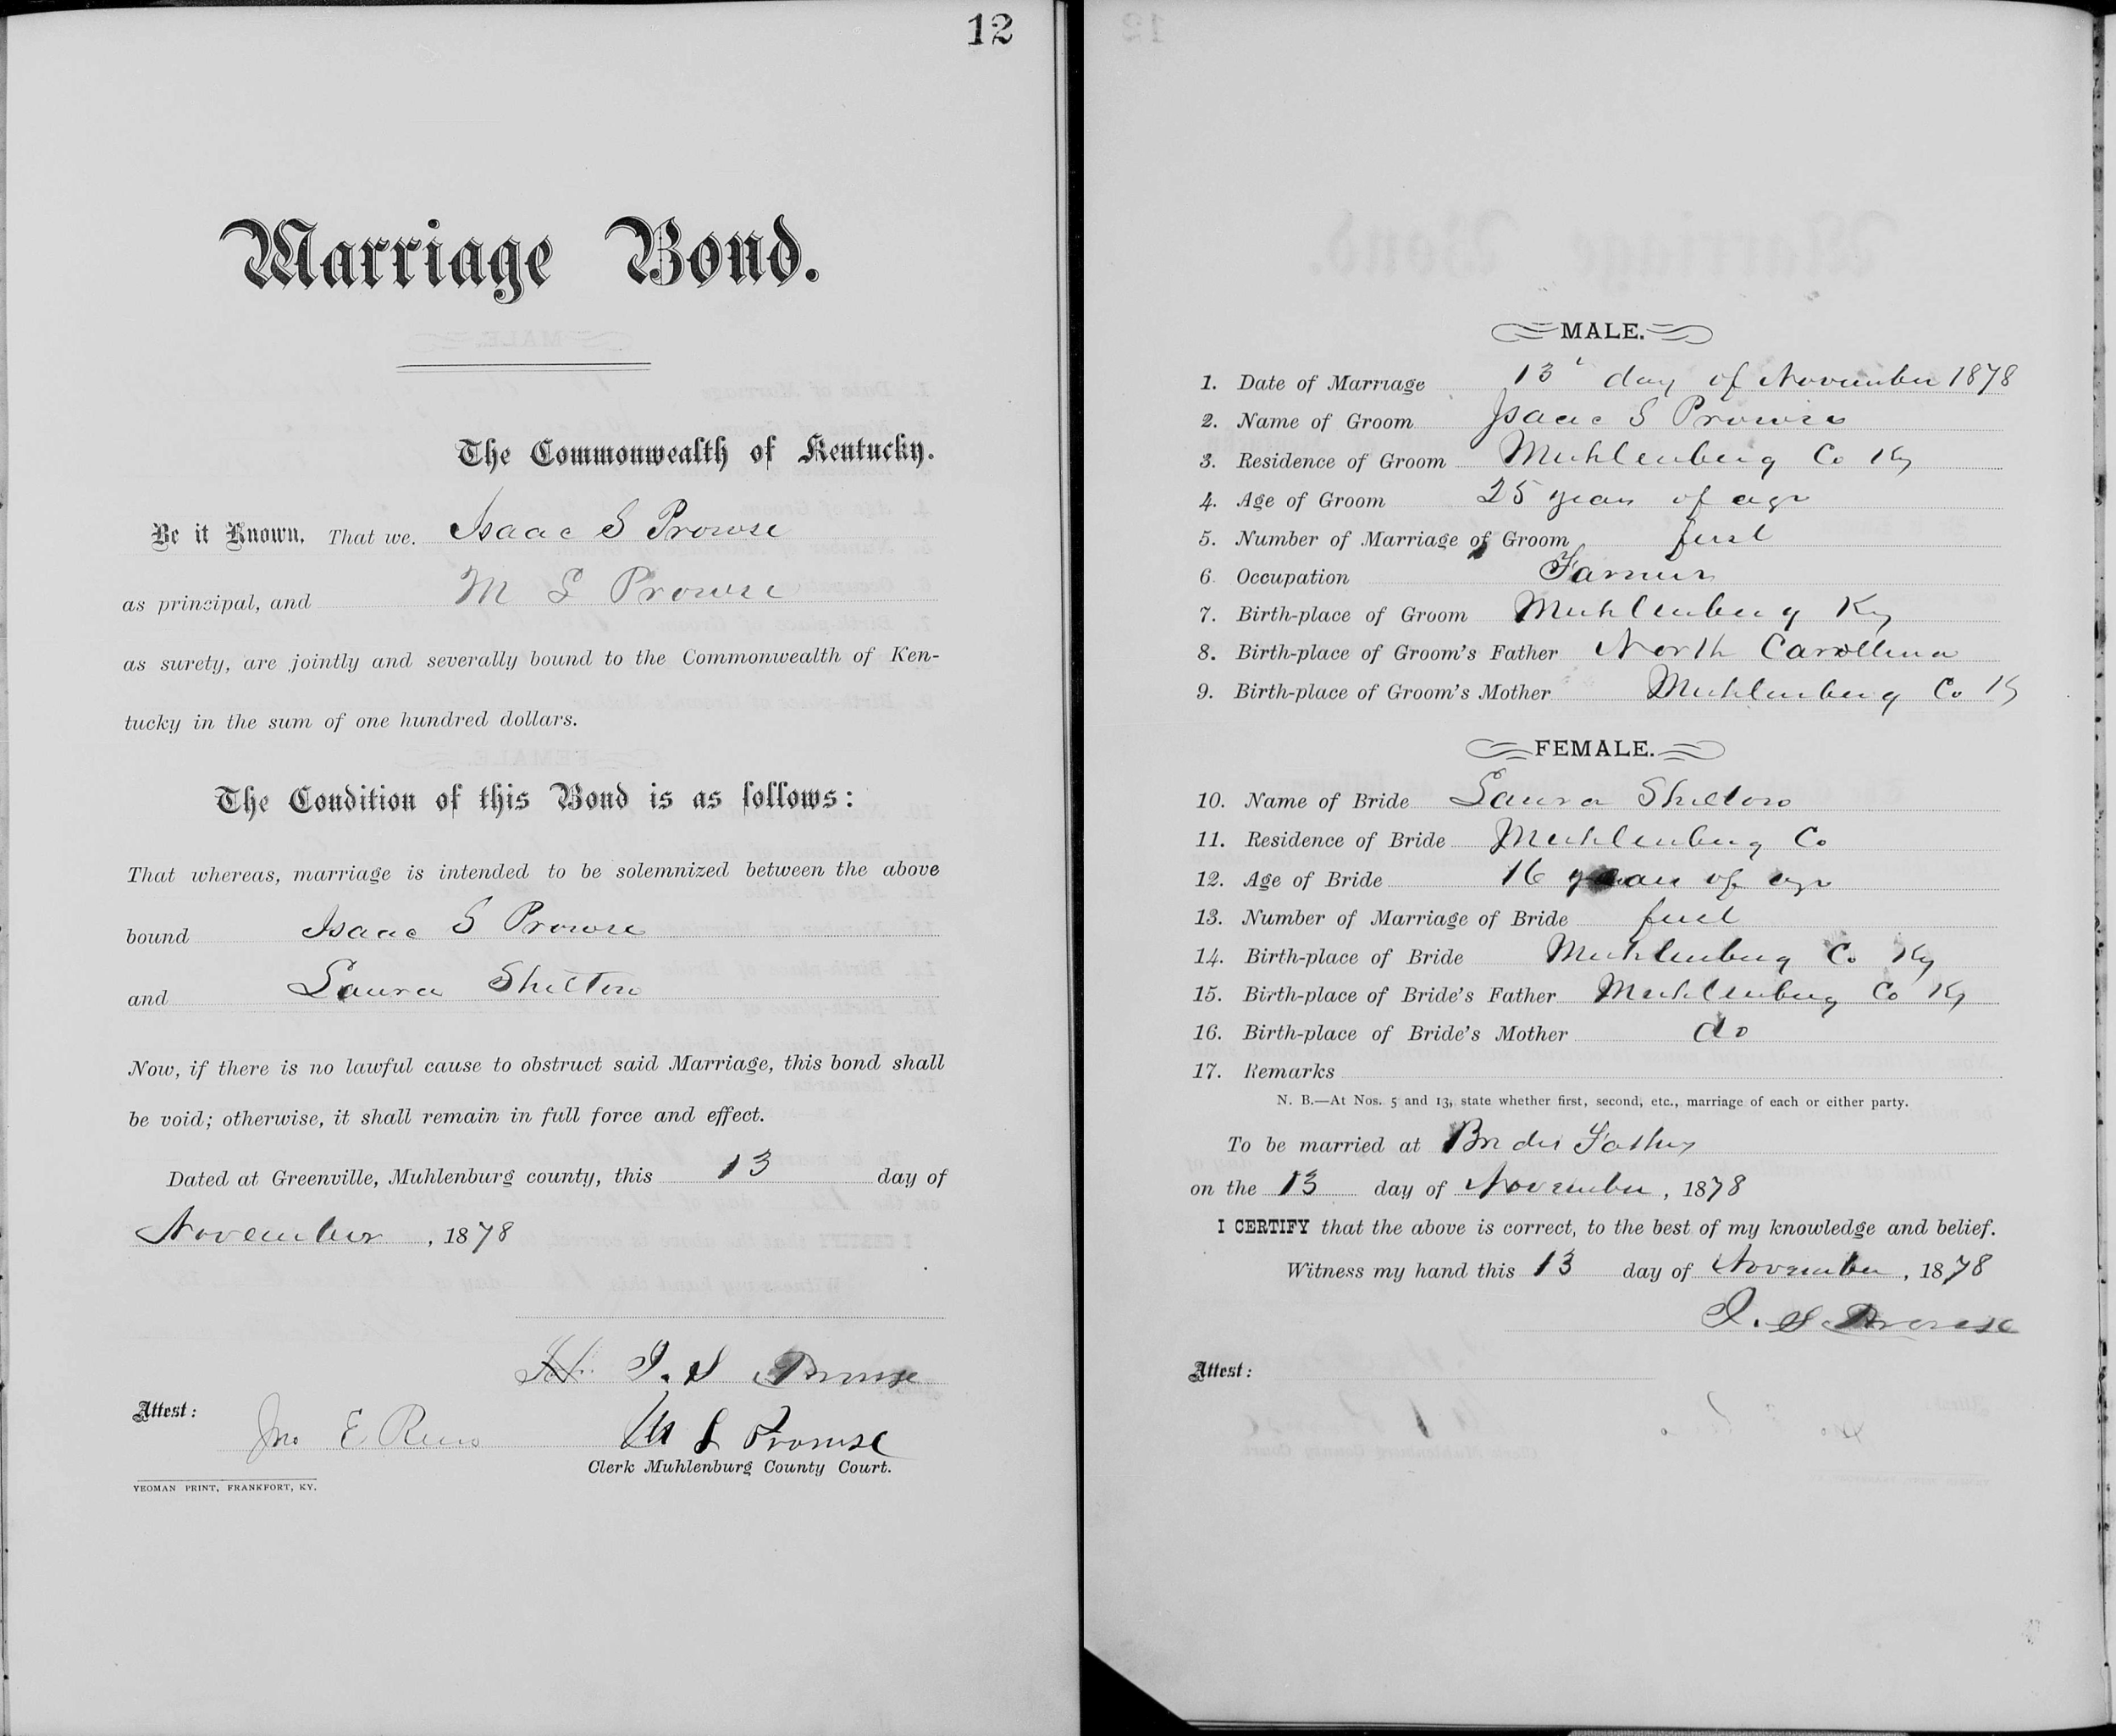 12
Marriage Bond.
The Commonwealth of Kentucky.
Be it Known, That we, Isaac S Prowse
as principal, and M L Prowse
as surety, are jointly and severally bound to the Commonwealth of Ken-
tucky in the sum of one hundred dollars.
The Condition of this Bond is as follows:
That whereas, marriage is intended to be solemnized between the above
bound Isaac S Prowse
and Laura Shelton
Now, if there is no lawful cause to obstruct said Marriage, this bond shall
be void; otherwise, it shall remain in full force and effect.
Dated at Greenville, Muhlenburg county, this 13 day of
November, 1878
I. S Prowse
Attest: Jno E Reno M L Prowse
Clerk Muhlenburg County Court.
YEOMAN PRINT, FRANKFORT, KY.
MALE.
1. Date of Marriage 13 day of November 1878
2. Name of Groom Isaac S Prowse
3. Residence of Groom Muhlenberg Co Ky
4. Age of Groom 25 years of age
5. Number of Marriage of Groom first
6. Occupation Farmer
7. Birth-place of Groom Muhlenberg Ky
8. Birth-place of Groom's Father North Carollina
9. Birth-place of Groom's Mother Muhlenberg Co Ky
FEMALE.
10. Name of Bride Laura Shelton
11. Residence of Bride Muhlenberg Co
12. Age of Bride 16 years of age
13. Number of Marriage of Bride first
14. Birth-place of Bride Muhlenberg Co Ky
15. Birth-place of Bride's Father Muhlenberg Co Ky
16. Birth-place of Bride's Mother do
17. Remarks
N. B.—At Nos. 5 and 13, state whether first, second, etc., marriage of each or either party.
To be married at Brides Fathers
on the 13 day of November, 1878
I CERTIFY that the above is correct, to the best of my knowledge and belief.
Witness my hand this 13 day of November, 1878
I. S Prowse
Attest: